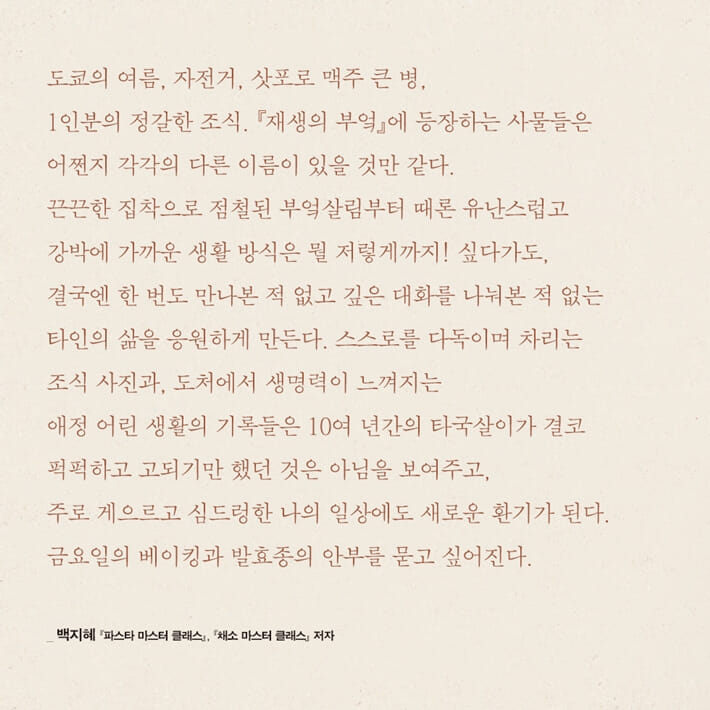 도쿄의 여름, 자전거, 삿포로 맥주 큰 병,
1인분의 정갈한 조식.『재생의 부엌』에 등장하는 사물들은
어쩐지 각각의 다른 이름이 있을 것만 같다.
끈끈한 집착으로 점철된 부엌살림부터 때론 유난스럽고
강박에 가까운 생활 방식은 뭘 저렇게까지! 싶다가도,
결국엔 한 번도 만나본 적 없고 깊은 대화를 나눠본 적 없는
타인의 삶을 응원하게 만든다. 스스로를 다독이며 차리는
조식 사진과, 도처에서 생명력이 느껴지는
애정 어린 생활의 기록들은 10여 년간의 타국살이가 결코
퍽퍽하고 고되기만 했던 것은 아님을 보여주고,
주로 게으르고 심드렁한 나의 일상에도 새로운 환기가 된다.
금요일의 베이킹과 발효종의 안부를 묻고 싶어진다.
_ 백지혜 『파스타 마스터 클래스』, 『채소 마스터 클래스』 저자